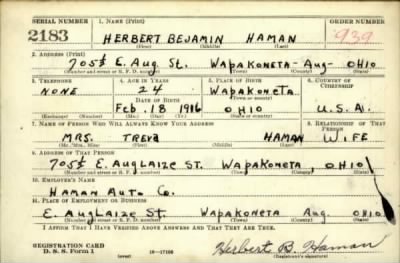 SERIAL NUMBER 1. NAME (Print) ORDER NUMBER
2183 HERBERT BEJAMIN HAMAN 939
(First) (Middle) (Last)
2. ADDRESS (Print)
705½ E. Aug St. WAPAKONETA - Aug - OHIO
(Number and street or R. F. D. number) (Town) (County) (State)
3. TELEPHONE 4. AGE IN YEARS 5. PLACE OF BIRTH 6. COUNTRY OF CITIZENSHIP
NONE 24 WAPAKONETA
DATE OF BIRTH (Town or county)
Feb. 18 1916 OHIO U.S.A.
(Exchange) (Number) (Mo.) (Day) (Yr.) (State or country)
7. NAME OF PERSON WHO WILL ALWAYS KNOW YOUR ADDRESS 8. RELATIONSHIP OF THAT PERSON
MRS. TREVA HAMAN WIFE
(Mr., Mrs., Miss) (First) (Middle) (Last)
9. ADDRESS OF THAT PERSON
705½ E. AUGLAIZE ST. WAPAKONETA, OHIO
(Number and street or R. F. D. number) (Town) (County) (State)
10. EMPLOYER'S NAME
HAMAN AUTO CO.
11. PLACE OF EMPLOYMENT OR BUSINESS
E. AUGLAIZE ST WAPAKONETA Aug OHIO
(Number and street or R. F. D. number) (Town) (County) (State)
I AFFIRM THAT I HAVE VERIFIED ABOVE ANSWERS AND THAT THEY ARE TRUE.
REGISTRATION CARD
D. S. S. Form 1 (over) Herbert B. Haman
(Registrant's signature)